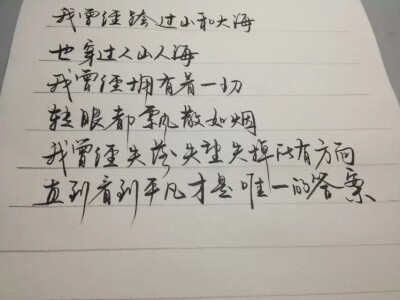 我曾经跨过山和大海
也穿过人山人海
我曾经拥有着一切
转眼都飘散如烟
我曾经失落失望失掉所有方向
直到看到平凡才是唯一的答案